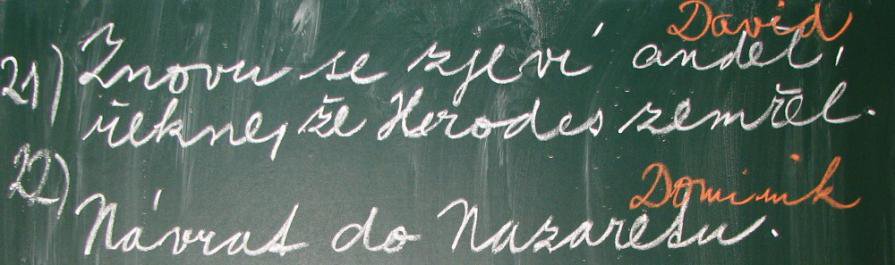 David
21) Znovu se zjeví anděl,
řekne, že Herodes zemřel.
Dominik
22) Návrat do Nazaretu.